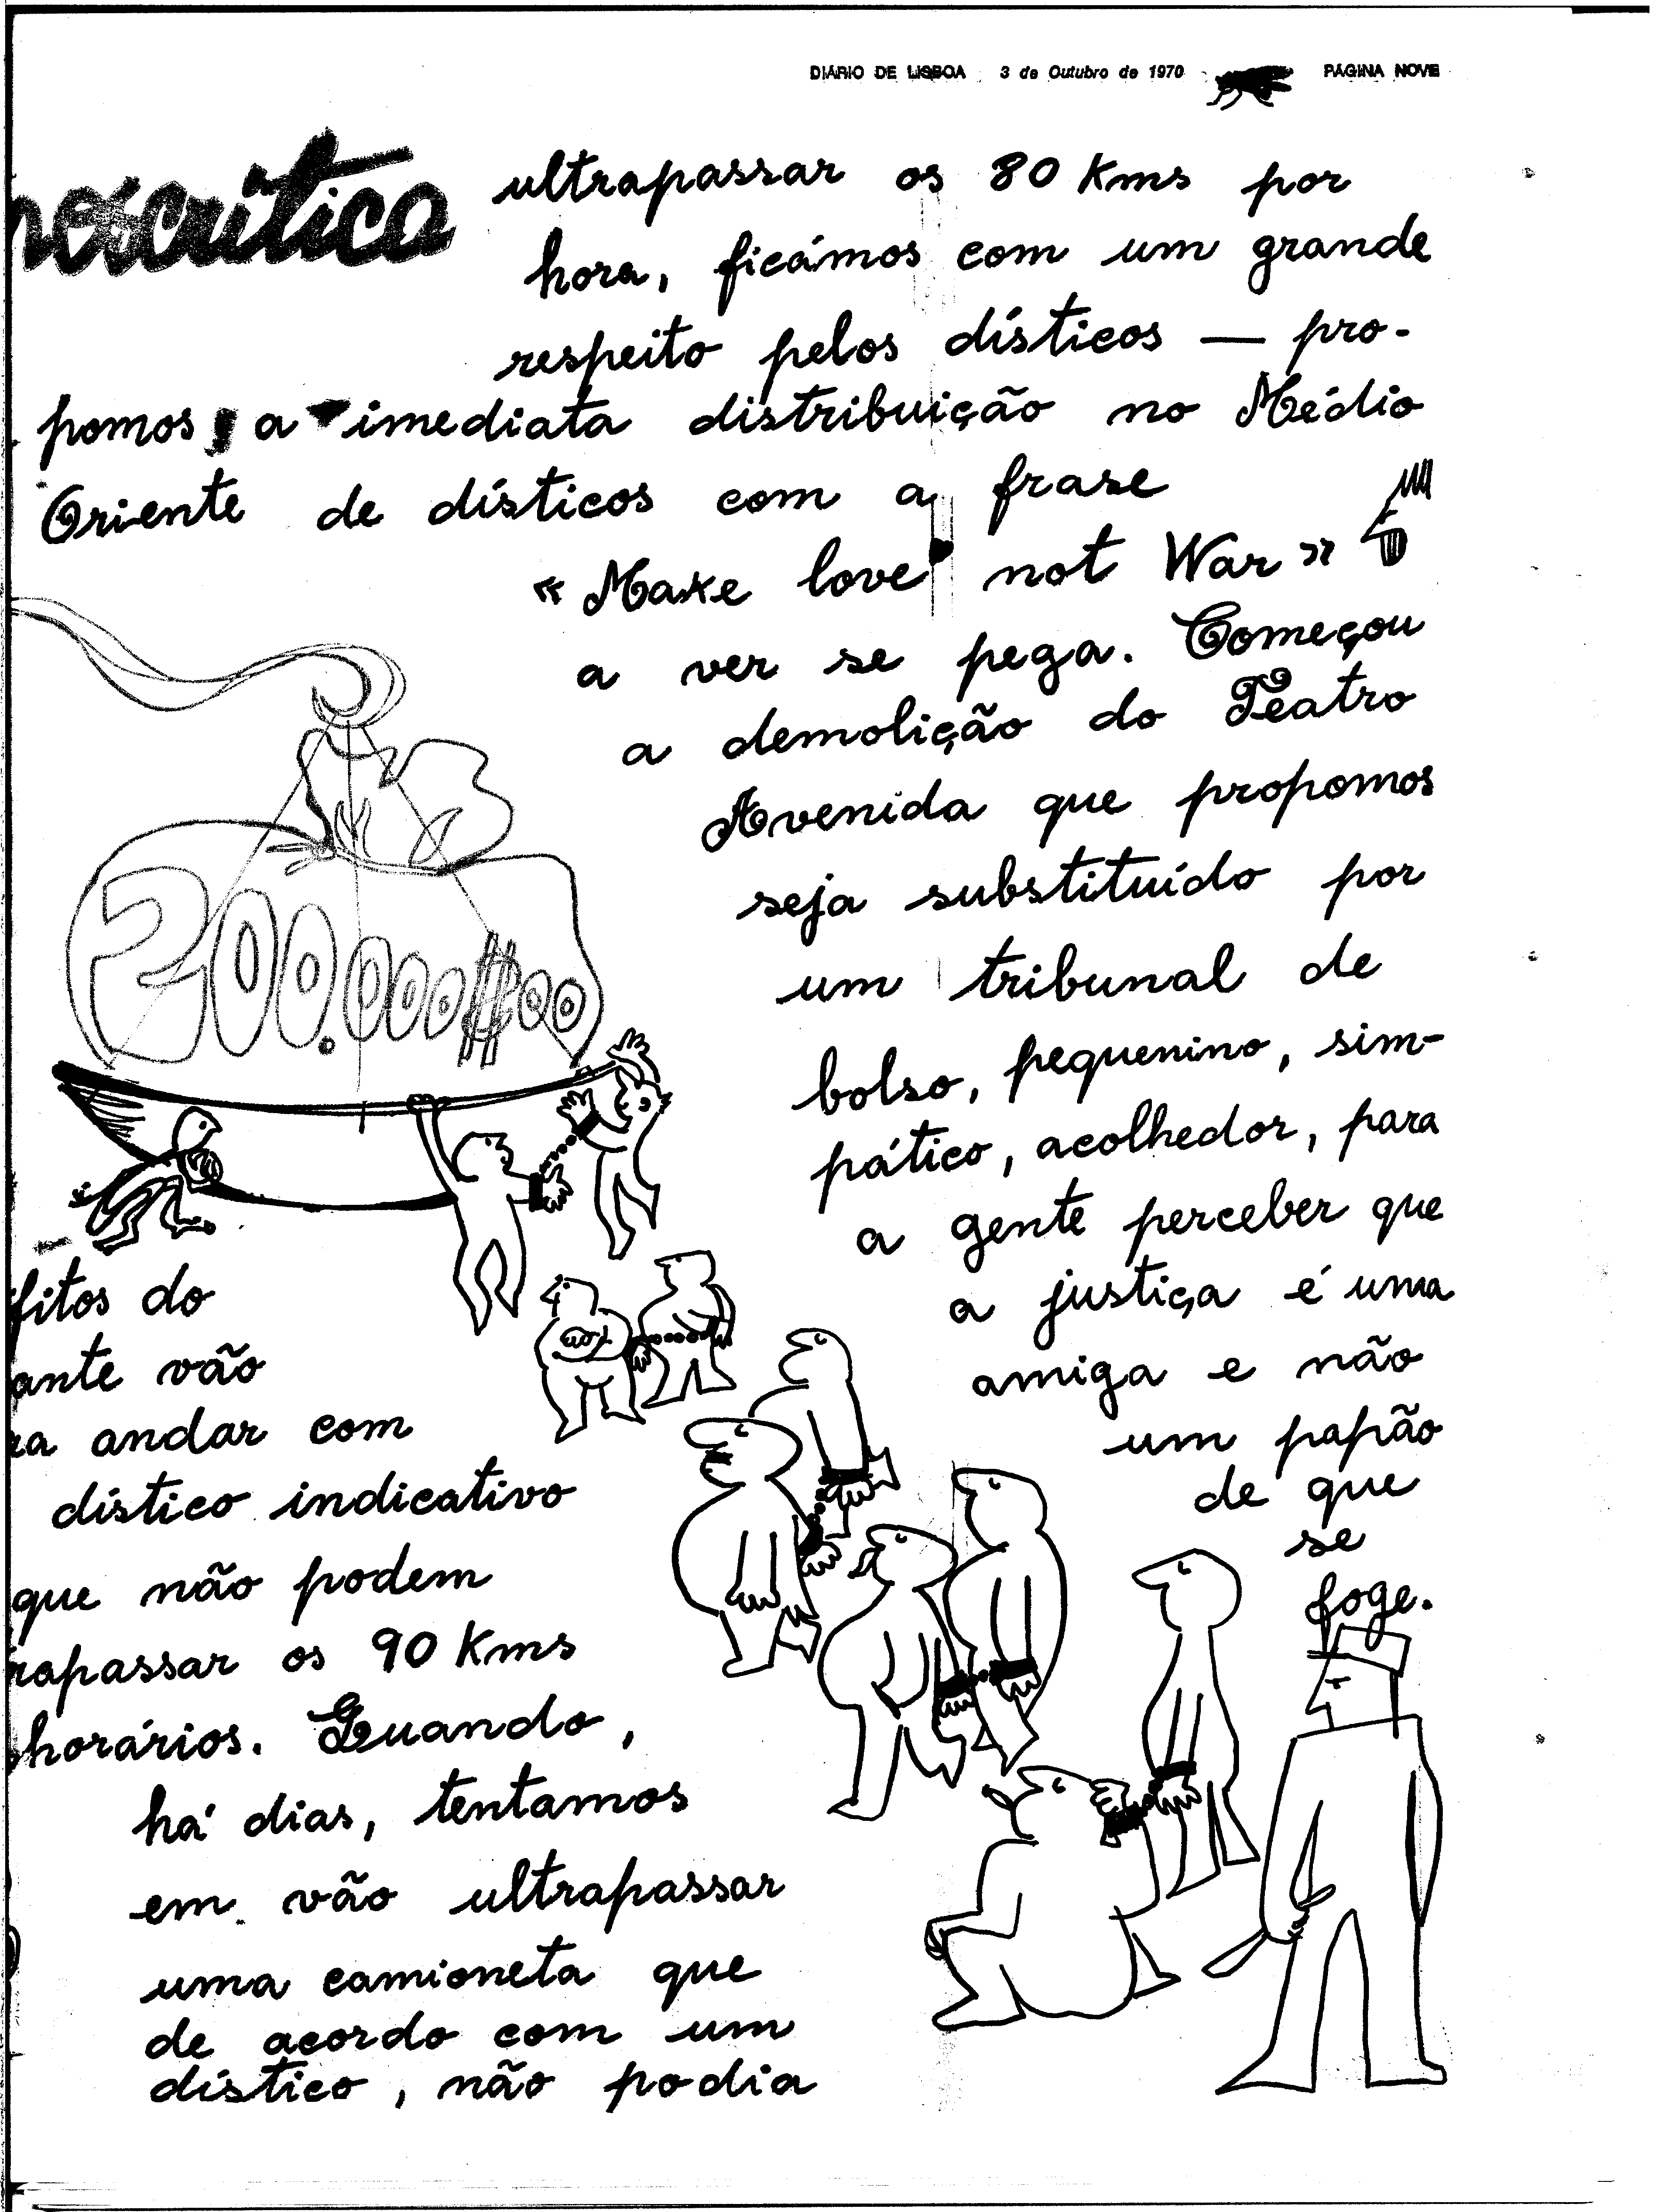 DIÁRIO DE LISBOA 3 de Outubro de 1970 PÁGINA NOVE
fitos do
ante vão
ra andar com
dístico indicativo
que não podem
rapassar os 90 Kms
horários. Quando,
há dias, tentamos
em vão ultrapassar
uma camioneta que
de acordo com um
dístico, não podia
ultrapassar os 80 Kms por
hora, ficámos com um grande
respeito pelos dísticos — pro-
pomos, a imediata distribuição no Médio
Oriente de dísticos com a frase
«Make love not War»
a ver se pega. Começou
a demolição do Teatro
Avenida que propomos
seja substituído por
um tribunal de
bolso, pequenino, sim-
pático, acolhedor, para
a gente perceber que
a justiça é uma
amiga e não
um papão
de que
se
foge.
200.000$00